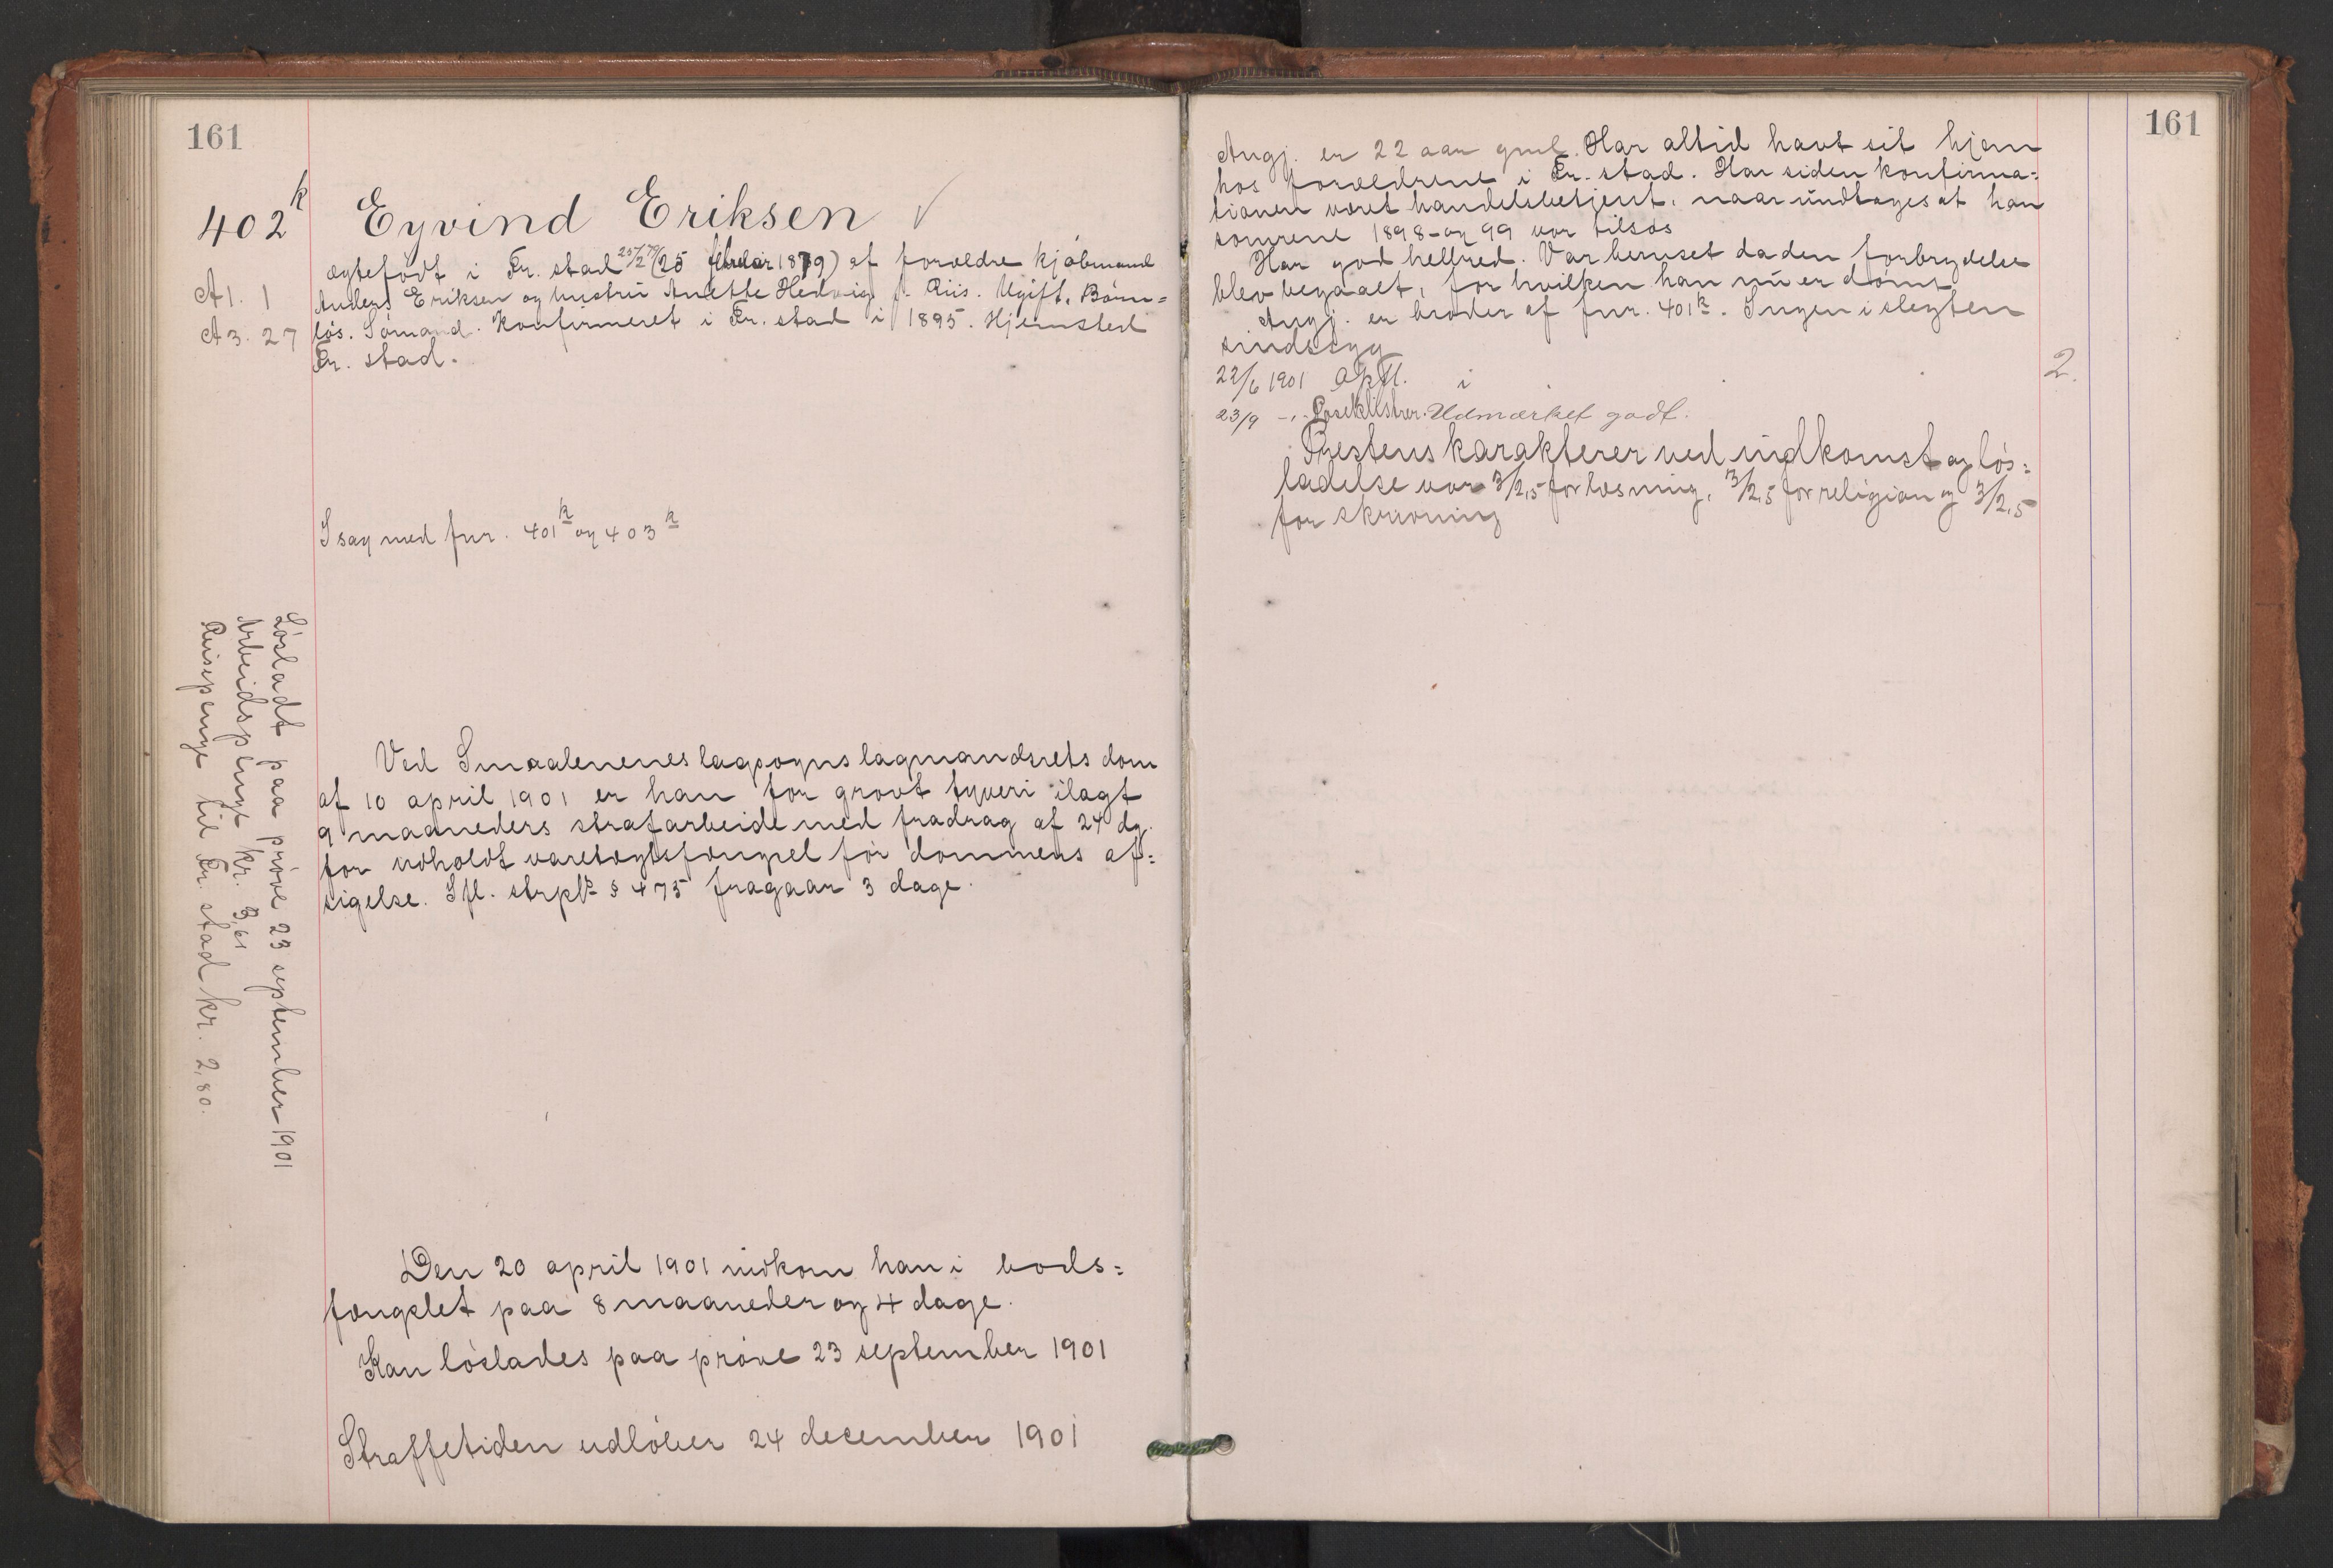 161
402k
A 1. 1
A 3. 27
Eyvind Eriksen √
ægtefödt i Fr. stad 25/2 79 (25 februar 1879) af forældre kjöbmand
Anders Eriksen og hustru Anette Hedvig f. Riis. Ugift. Barn-
lös. Sömand. Konfirmeret i Fr. stad i 1895. Hjemsted
Fr. stad.
I sag med fnr. 401k og 403k
Ved Smaalenenes lagsogns lagmandsrets dom
af 10 april 1901 er han for grovt tyveri ilagt
9 maaneders strafarbeide med fradrag af 24 dg.
for udholdt varetægtsfængsel för dommens af=
sigelse. Ifl. strpl. § 475 fragaar 3 dage.
Den 20 april 1901 indkom han i bods=
fængslet paa 8 maaneder og 4 dage.
Kan löslades paa pröve 23 september 1901
Straffetiden udlöber 24 december 1901
Lösladt paa pröve 23 september 1901
Arbeidspenge kr. 3,61
Reisepenge til Fr. stad kr. 2,80.
161
Angj. er 22 aar gml. Har altid havt sit hjem
hos forældrene i Fr. stad. Har siden konfirma=
tionen været handelsbetjent, naar undtages at han
somrene 1898- og 99 var tilsös
Har god helbred. Var beruset da den forbrydelse
blev begaaet, for hvilken han nu er dömt
Angj. er broder af fnr. 401k. Ingen i slegten
sindssyg
22/6 1901 Opfl. i
2.
23/9 -"- Poseklistrer. Udmærket godt.
Prestens karakterer ved indkomst og lös=
ladelse var 3/2,5 for læsning, 3/2,5 for religion og 3/2,5
for skrivning